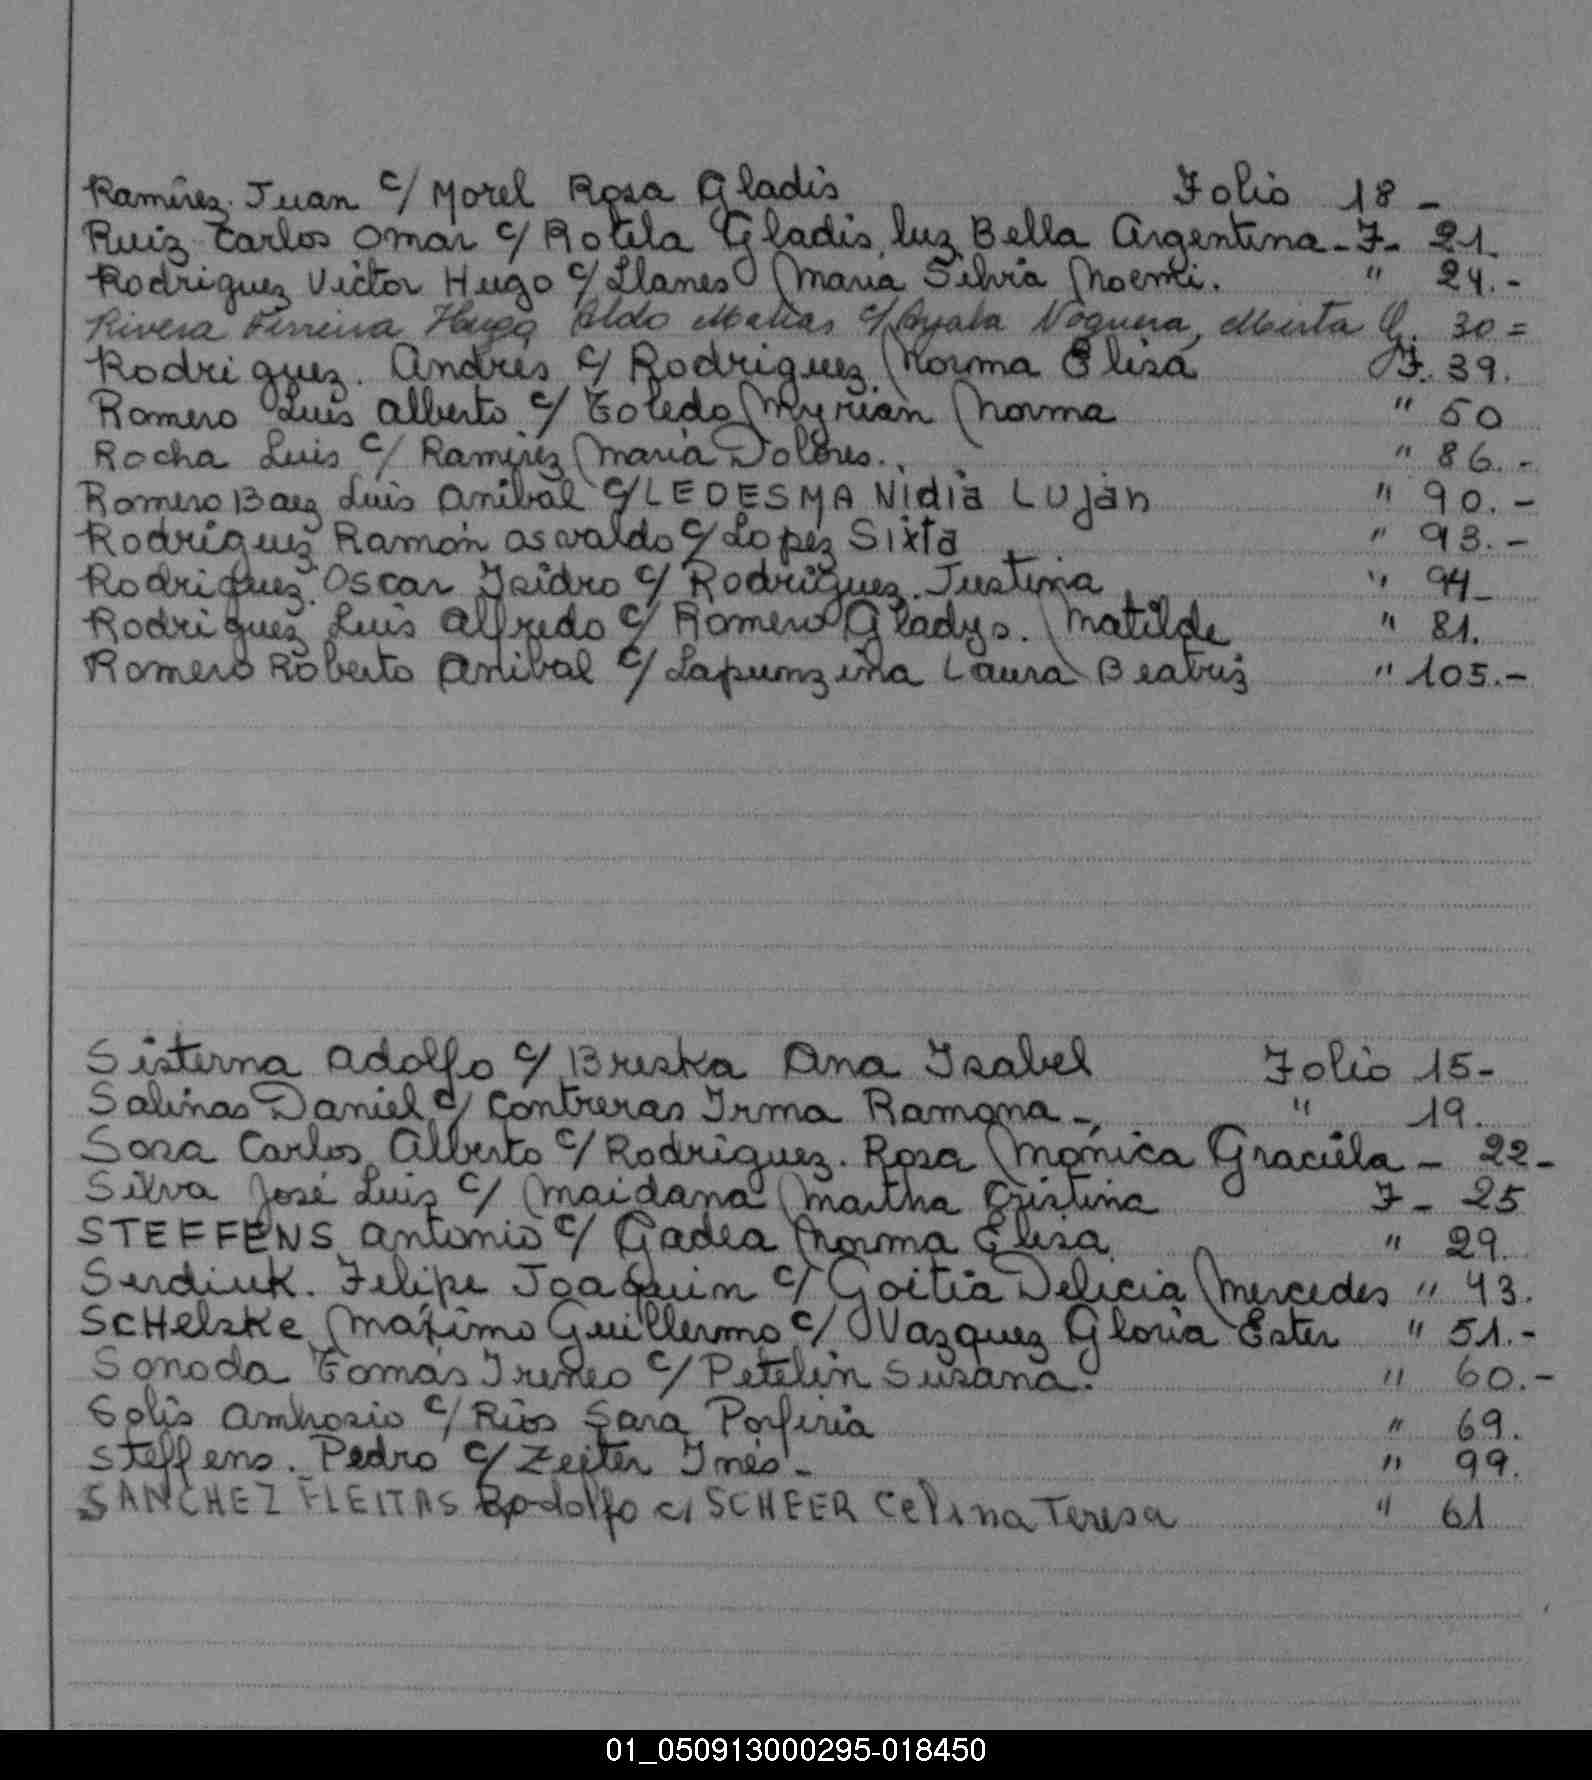 Ramírez. Juan c/ Morel Rosa Gladis Folio 18 -
Ruiz Carlos Omar c/ Rotela Gladis luz Bella Argentina - F- 21
Rodriguez Victor Hugo c/ Llanes Maria Silvia Noemi. " 24.-
Rivera Ferreira Hugo Aldo Matias c/ Ayala Noguera, Mirta G. 30 =
Rodriguez. Andrés c/ Rodriguez. Norma Elisa F. 39.
Romero Luis Alberto c/ Toledo Myrian Norma " 50
Rocha Luis c/ Ramirez Maria Dolores. " 86.-
Romero Baez Luis Anibal c/ LEDESMA Nidia LUján " 90.-
Rodriguez Ramón Osvaldo c/ Lopez Sixta " 93.-
Rodriguez. Oscar Isidro c/ Rodriguez. Justina " 94-
Rodriguez Luis Alfredo c/ Romero Gladys. Matilde " 81.
Romero Roberto Anibal c/ Lapunzina Laura Beatriz " 105.-
Sisterna Adolfo c/ Breska Ana Isabel Folio 15-
Salinas Daniel c/ Contreras Irma Ramona - " 19.
Sosa Carlos Alberto c/ Rodriguez. Rosa Mónica Graciela - 22-
Silva José Luis c/ Maidana Martha Cristina F - 25
STEFFENS Antonio c/ Gadea Norma Elisa " 29.
Serdiuk. Felipe Joaquin c/ Goitia Delicia Mercedes " 43.
ScHelske Máximo Guillermo c/ Vazquez Gloria Ester " 51.-
Sonoda Tomás Ireneo c/ Petelin Susana. " 60.-
Solis Ambrosio c/ Rios Sara Porfiria " 69.
Steffens. Pedro c/ Zeiter Inés - " 99.
SANCHEZ FLEITAS Rodolfo c/ SCHEER Celina Teresa " 61
01_050913000295-018450